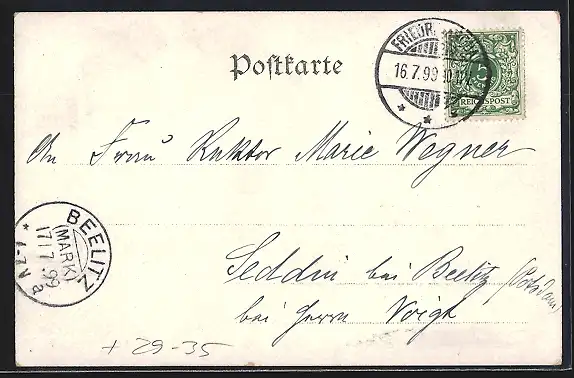 Postkarte
FRIEDR
16.7.99
5
REICHSPOST
An Frau Rektor Marie Wegner
BEELITZ
(MARK)
17/7.99
1-2N
a
Seddin bei Beelitz (Potsdam)
bei Herrn Voigt
+ 29-35